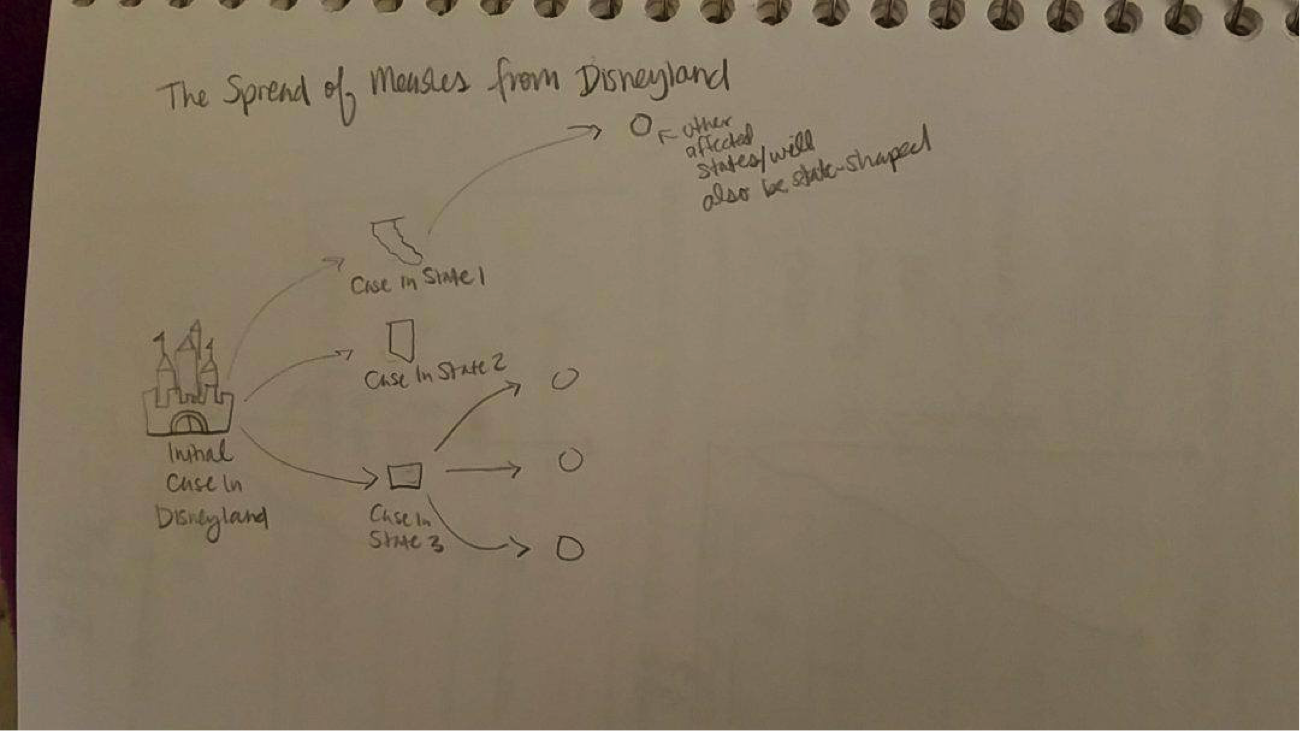 The Spread of Measles from Disneyland
other
affected
states/will
also be state-shaped
Case in State 1
Case in State 2
Initial
Case in
Disneyland
Case in
State 3